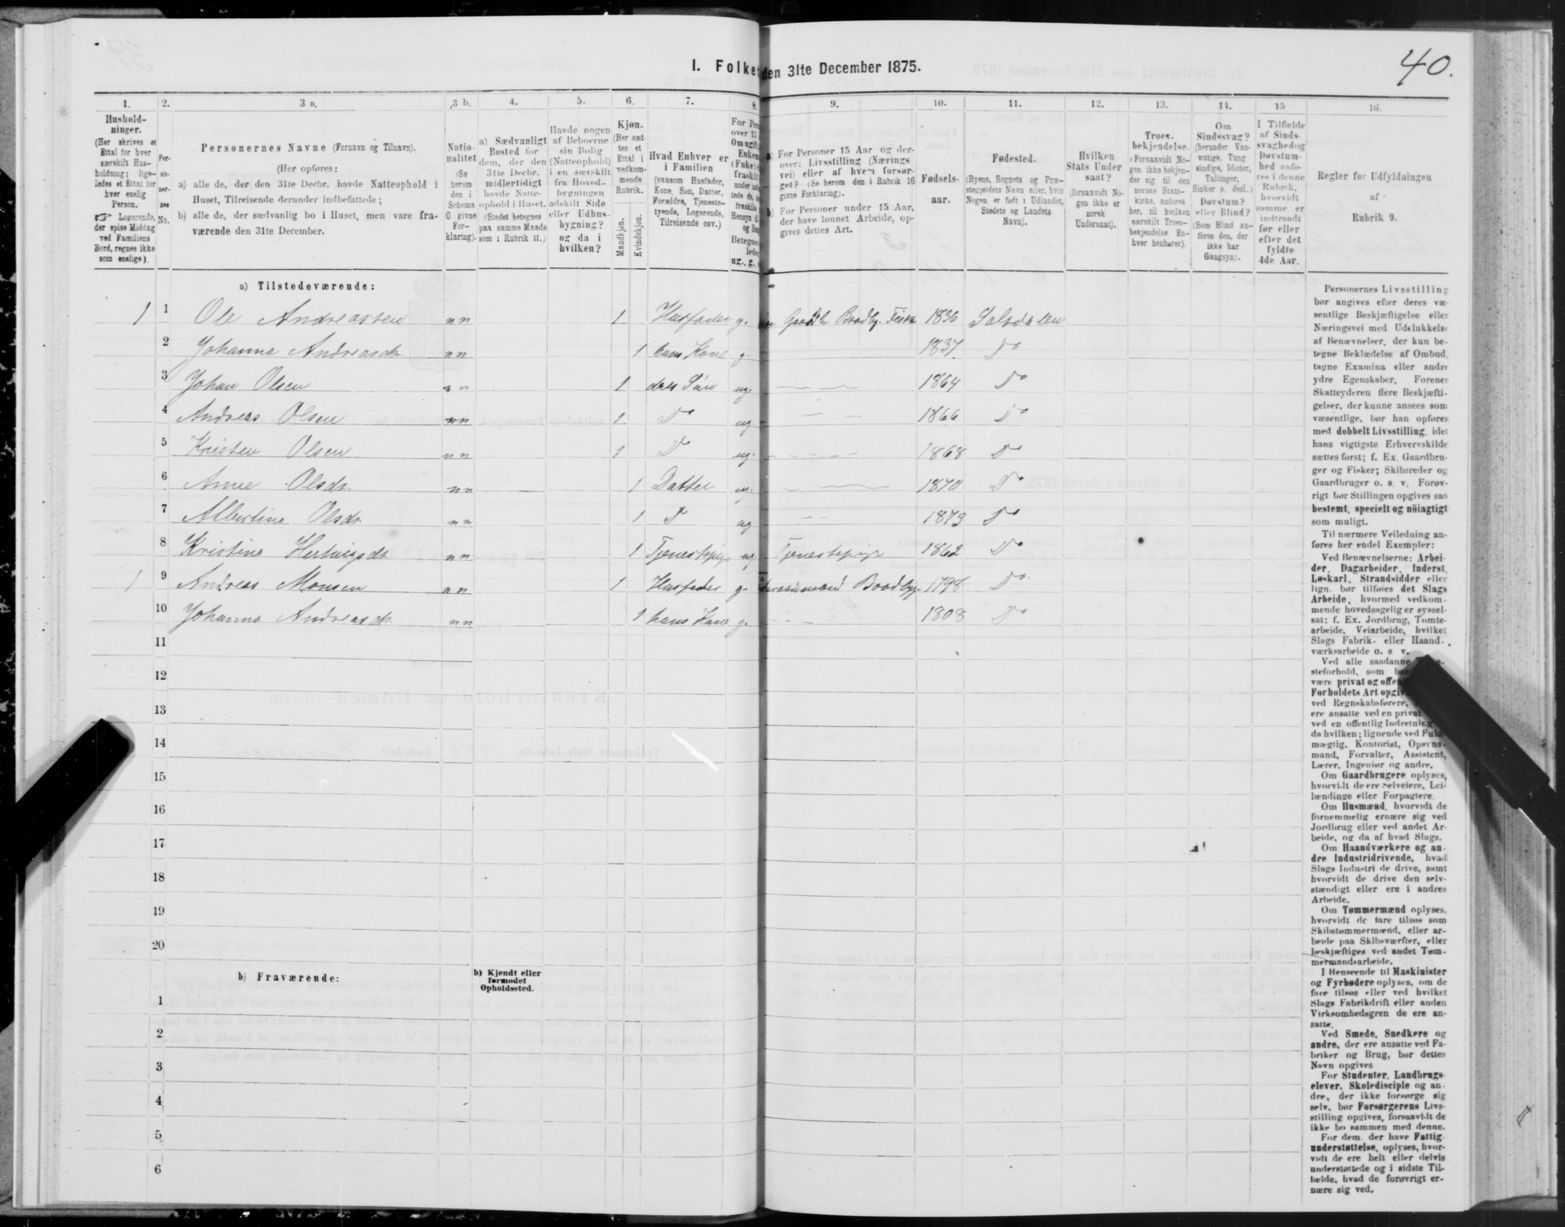 40.
I. Folke den 31te December 1875.
1. 2. 3 a. 3 b. 4. 5. 6. 7. 8. 9. 10. 11. 12. 13. 14. 15 16.
Hushold-
ninger.
(Her skrives et
Ettal for hver
særskilt Hus-
holdning; lige-
ledes et Ettal for
hver enslig
Person.
☞ Logerende,
der spise Middag
ved Familiens
Bord, regnes ikke
som enslige).
Per-
so-
ner-
nes
No.
Personernes Navne (Fornavn og Tilnavn).
(Her opføres:
a) alle de, der den 31te Decbr. havde Natteophold i
Huset, Tilreisende derunder indbefattede;
b) alle de, der sædvanlig bo i Huset, men vare fra-
værende den 31te December.
Natio-
nalitet
(Se
herom
den i
Schema
O givne
For-
klaring).
a) Sædvanligt
Bosted for
dem, der den
31te Decbr.
midlertidigt
havde Natte-
ophold i Huset.
(Stedet betegnes
paa samme Maade
som i Rubrik 11.)
Havde nogen
af Beboerne
sin Bolig
(Natteophold)
i en særskilt
fra Hoved-
bygningen
adskilt Side
eller Udhus-
bygning?
og da i
hvilken?
Kjøn.
(Her sæt-
tes et
Ettal i
vedkom-
mende
Rubrik.
Mandkjøn.
Kvindekjøn.
Hvad Enhver er
i Familien
(saasom Husfader,
Kone, Søn, Datter,
Forældre, Tjeneste-
tyende, Logerende,
Tilreisende osv.)
For Personer 15 Aar og der-
over: Livsstilling (Nærings
vei) eller af hvem forsør-
get? (Se herom den i Rubrik 16
givne Forklaring).
For Personer under 15 Aar,
der have lønnet Arbeide, op-
gives dettes Art.
Fødsels-
aar.
Fødested.
(Byens, Sognets og Præ-
stegjeldets Navn eller, hvis
Nogen er født i Udlandet,
Stedets og Landets
Navn).
Hvilken
Stats Under
saat?
(forsaavidt No-
gen ikke er
norsk
Undersaat).
Troes-
bekjendelse.
(Forsaavidt No-
gen ikke bekjen-
der sig til den
norske Stats-
kirke, anføres
her, til hvilken
særskilt Troes-
bekjendelse En-
hver henhører).
Om
Sindssvag?
(herunder Van-
vittige, Tung
sindige, Idioter,
Tullinger,
Sinker o. desl.)
Døvstum?
eller Blind?
(Som Blind an-
føres den, der
ikke har
Gangsyn).
I Tilfælde
af Sinds-
svaghed og
Døvstum-
hed anfø-
res i denne
Rubrik,
hvorvidt
samme er
indtraadt
før eller
efter det
fyldte
4de Aar.
Regler for Udfyldningen
af
Rubrik 9.
a) Tilstedeværende:
1 1 Ole Andreassen nn 1 Husfader g. Gaardb. Fisker 1836 Salsdalen
2 Johanna Andreasdr nn 1 hans Kone g. 1837. Do
3 Johan Olsen nn 1 deres Søn ug. 1864 Do
4 Andreas Olsen nn 1 Do ug. 1866 Do
5 Kristen Olsen nn 1 D ug. 1868 Do
6 Anne Olsdr nn 1 Datter ug. 1870 Do
7 Albertine Olsdr nn 1 D ug 1873 Do
8 Kristine nn 1 Tjenestepige ug. Tjenestepige 1862 Do
1 9 Andreas Monsen nn 1 Husfader g. 1798 Do
10 Johanna Andreasdr nn 1 hans Kone g. 1808 Do
11
12
13
14
15
16
17
18
19
20
b) Fraværende:
b) Kjendt eller
formodet
Opholdssted.
1
2
3
4
5
6
Personernes Livsstilling
bør angives efter deres væ-
sentlige Beskjæftigelse eller
Næringsvei med Udelukkelse
af Benævnelser, der kun be-
tegne Beklædelse af Ombud,
tagne Examina eller andre
ydre Egenskaber. Forener
Skatteyderen flere Beskjæfti-
gelser, der kunne ansees som
væsentlige, bør han opføres
med dobbelt Livsstilling, idet
hans vigtigste Erhvervskilde
sættes først; f. Ex. Gaardbru-
ger og Fisker; Skibsreder og
Gaardbruger o. s. v. Forøv-
rigt bør Stillingen opgives saa
bestemt, specielt og nöiagtigt
som muligt.
Til nærmere Veiledning an-
føres her endel Exempler:
Ved Benævnelserne: Arbei-
der, Dagarbeider, Inderst,
Løskarl, Strandsidder eller
lign. bør tilføies det Slags
Arbeide, hvormed vedkom-
mende hovedsagelig er syssel-
sat; f. Ex. Jordbrug, Tomte-
arbeide, Veiarbeide, hvilket
Slags Fabrik- eller Haand-
værksarbeide o. s. v.
Ved alle saadanne
steforhold, som
være privat og
Forholdets Art
ved Regnskabsførere,
ere ansatte ved en privat
ved en offentlig Indretning
da hvilken; lignende ved Fuld-
mægtig, Kontorist, Opsyns-
mand, Forvalter, Assistent,
Lærer, Ingeniør og andre.
Om Gaardbrugere oplyses,
hvorvidt de ere Selveiere, Lei-
lændinge eller Forpagtere.
Om Husmænd, hvorvidt de
fornemmelig ernære sig ved
Jordbrug eller ved andet Ar-
beide, og da af hvad Slags.
Om Haandværkere og an-
dre Industridrivende, hvad
Slags Industri de drive, samt
hvorvidt de drive den selv-
stændigt eller ere i andres
Arbeide.
Om Tømmermænd oplyses,
hvorvidt de fare tilsøs som
Skibstømmermænd, eller ar-
beide paa Skibsværfter, eller
beskjæftiges ved andet Tøm-
mermandsarbeide.
I Henseende til Maskinister
og Fyrbødere oplyses, om de
fare tilsøs eller ved hvilket
Slags Fabrikdrift eller anden
Virksomhedsgren de ere an-
satte.
Ved Smede, Snedkere og
andre, der ere ansatte ved Fa-
briker og Brug, bør dettes
Navn opgives
For Studenter, Landbrugs-
elever, Skoledisciple og an-
dre, der ikke forsørge sig
selv, bør Forsørgerens Livs-
stilling opgives, forsaavidt de
ikke bo sammen med denne.
For dem, der have Fattig
understøttelse, oplyses, hvor-
vidt de ere helt eller delvis
understøttede og i sidste Til-
fælde, hvad de forøvrigt er-
nære sig ved.